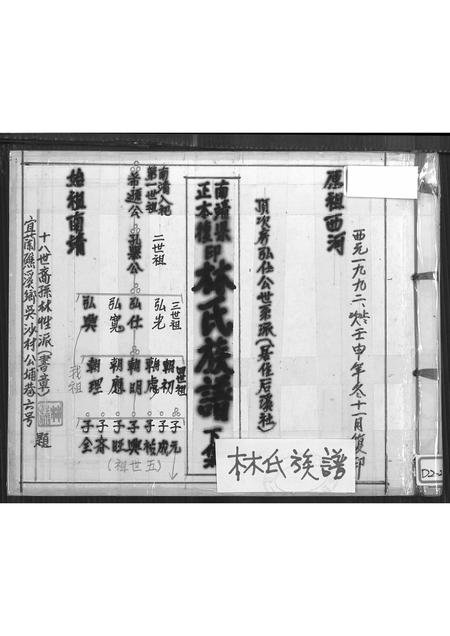 西元一九九二、歲壬申年冬十一月復印
原祖西河
頂次房弘仕公世第派(居住后溪社)
南靖縣
正本復印
林氏族譜
下集
南靖入祀
第一世祖
希通公
二世祖
弘興公
三世祖
弘光
弘仕
弘寬
弘興
四世祖
朝初
朝虞
朝明
朝應
朝理
我祖
子元
子成
子裕
子興
子旺
子齊
子全
(五世祖)
始祖南靖
十八世裔孫林惟派(書章)
題
宜蘭礁溪鄉吳沙村公埔巷六号
林氏族譜